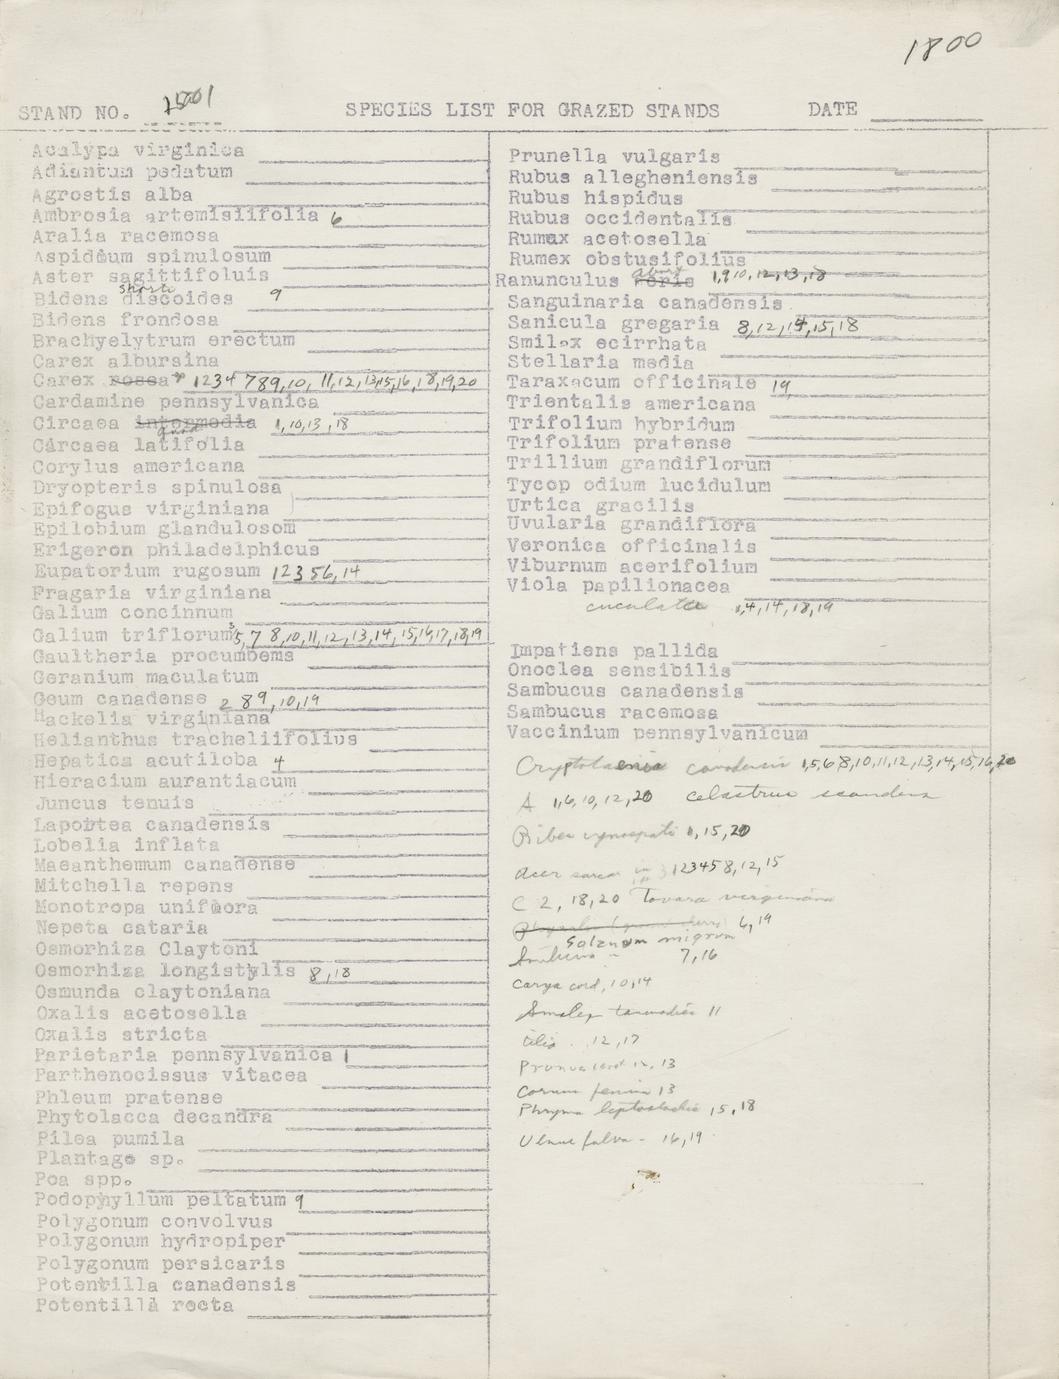 1800
STAND NO. 1501 SPECIES LIST FOR GRAZED STANDS DATE
Acalypa virginica
Adiantum pedatum
Agrostis alba
Ambrosia artemisiifolia 6
Aralia racemosa
Aspidium spinulosum
Aster sagittifoluis
shorti
Bidens discoides 9
Bidens frondosa
Brachyelytrum erectum
Carex albursina
Carex rosea 1234 789,10, 11,12,13,15,16,18,19,20
Cardamine pennsylvanica
Circaea intermedia 1,10,13,18
quad
Circaea latifolia
Corylus americana
Dryopteris spinulosa
Epifogus virginiana
Epilobium glandulosom
Erigeron philadelphicus
Eupatorium rugosum 12356,14
Fragaria virginiana
Galium concinnum
Galium triflorum 3 5,7 8,10,11,12,13,14,15,16,17,18,19
Gaultheria procumbems
Geranium maculatum
Geum canadense 2 89,10,19
Hackelia virginiana
Helianthus tracheliifolius
Hepatica acutiloba 4
Hieracium aurantiacum
Juncus tenuis
Laportea canadensis
Lobelia inflata
Maeanthemum canadense
Mitchella repens
Monotropa uniflora
Nepeta cataria
Osmorhiza Claytoni
Osmorhiza longistylis 8,18
Osmunda claytoniana
Oxalis acetosella
Oxalis stricta
Parietaria pennsylvanica 1
Parthenocissus vitacea
Phleum pratense
Phytolacca decandra
Pilea pumila
Plantago sp.
Poa spp.
Podophyllum peltatum 9
Polygonum convolvus
Polygonum hydropiper
Polygonum persicaris
Potentilla canadensis
Potentilla recta
Prunella vulgaris
Rubus allegheniensis
Rubus hispidus
Rubus occidentalis
Rumex acetosella
Rumex obstusifolius
abort
Ranunculus 1,9,10,12,13,18
Sanguinaria canadensis
Sanicula gregaria 8,12,14,15,18
Smilax ecirrhata
Stellaria media
Taraxacum officinale 19,
Trientalis americana
Trifolium hybridum
Trifolium pratense
Trillium grandiflorum
Tycop odium lucidulum
Urtica gracilis
Uvularia grandiflora
Veronica officinalis
Viburnum acerifolium
Viola papilionacea
cuculata 1,4,14,18,19
Impatiens pallida
Onoclea sensibilis
Sambucus canadensis
Sambucus racemosa
Vaccinium pennsylvanicum
Cryptotaenia canadensis 1,5,6,8,10,11,12,13,14,15,16,20
A 1,6,10,12,20 celastrus scandens
Ribes cynosbati 1,15,20
Acer sacar 123458,12,15
C 2,18,20 Tovara virginiana
6,19
Solanum nigrum
7,16
Carya cord, 10,14
Smilax 11
tilia 12,17
Prunus 13
Cornus femina 13
Phryma leptostachia 15,18
Ulmus fulva - 16,19